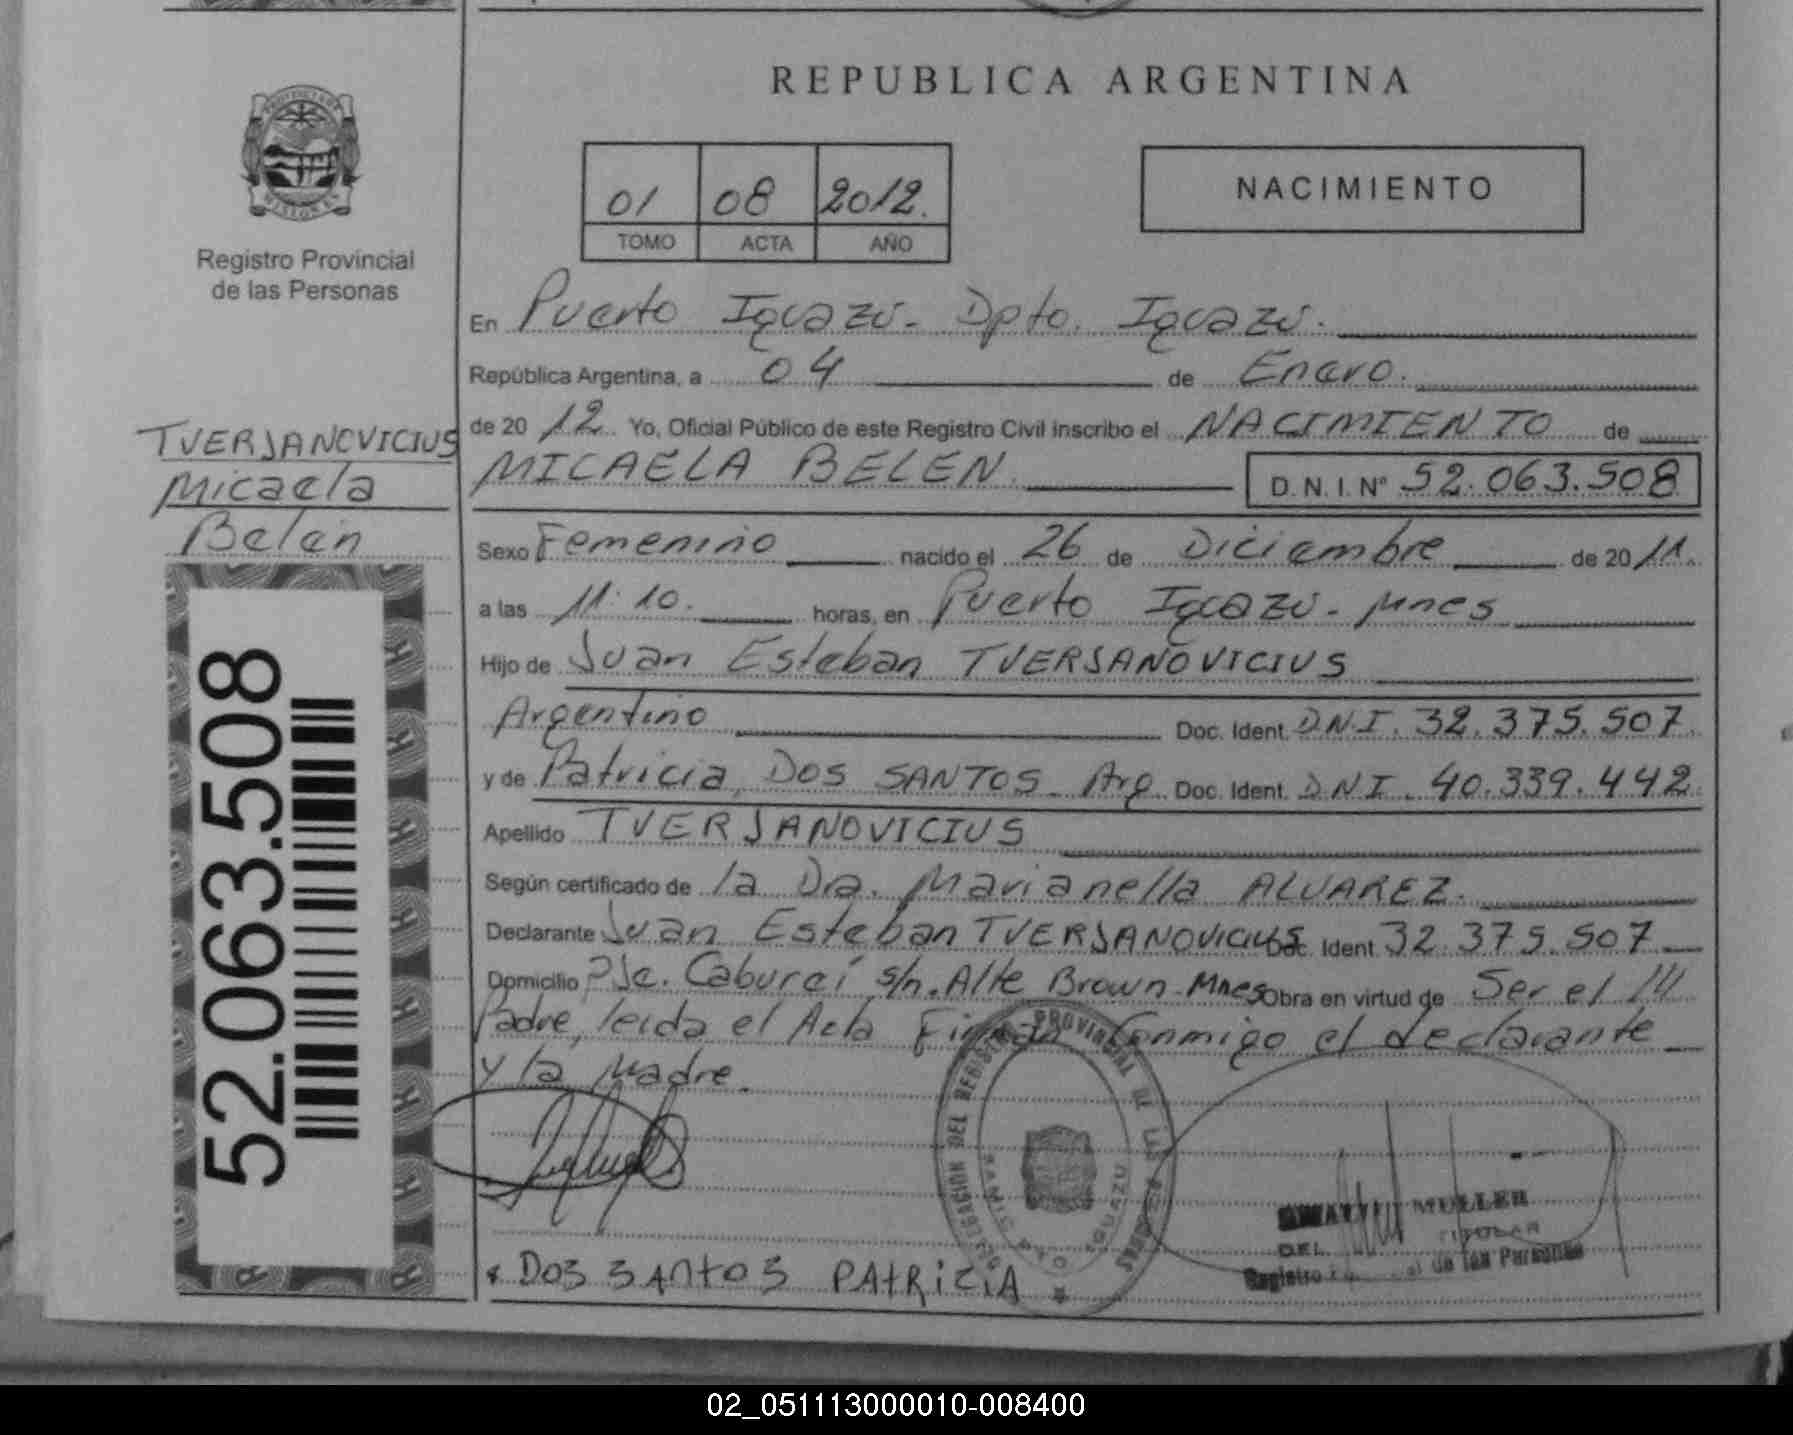 REPUBLICA ARGENTINA
PROVINCIA DE
MISIONES
Registro Provincial
de las Personas
01 08 2012.
TOMO ACTA AÑO
NACIMIENTO
En Puerto Iguazú - Dpto. Iguazú.
República Argentina, a 04 de Enero.
de 20 12 Yo, Oficial Público de este Registro Civil inscribo el NACIMIENTO de
MICAELA BELEN. D. N. I. Nº 52.063.508
TVERJANOVICIUS
Micaela
Belén
Sexo Femenino nacido el 26 de Diciembre de 20 11.
a las 11:10. horas, en Puerto Iguazú - Mnes
Hijo de Juan Esteban TVERJANOVICIUS
Argentino Doc. Ident. D.N.I. 32.375.507.
y de Patricia, DOS SANTOS - Arg. Doc. Ident. D.N.I. 40.339.442
Apellido TVERJANOVICIUS
Según certificado de la Dra. Marianella ALVAREZ.
Declarante Juan Esteban TVERJANOVICIUS Doc. Ident. 32.375.507
Domicilio Pje. Cabureí s/n. Alte Brown - Mnes Obra en virtud de Ser el
Padre, leída el Acta Firman Conmigo el declarante
y la Madre.
52.063.508
DELEGACION DEL REGISTRO PROVINCIAL DE LAS PERSONAS
IGUAZU
MULLER
TITULAR
Registro de las Personas
DOS SANTOS PATRICIA
02_051113000010-008400